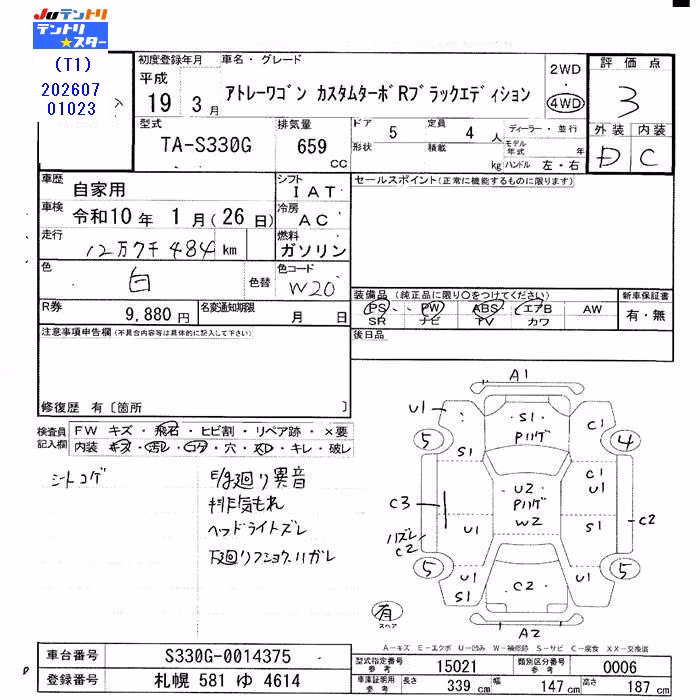 Juテントリ
テントリ★スター
(T1)
202607
01023
初度登録年月
平成
19 3月
車名・グレード
アトレーワゴン カスタムターボRブラックエディション
2WD
・
4WD
評価点
3
外装 内装
D C
型式
TA-S330G
排気量
659 CC
ドア 5
形状
定員 4 人
積載 kg
ディーラー・並行
モデル年式 年
ハンドル 左・右
車歴 自家用
シフト IAT
セールスポイント(正常に機能するものに限ります)
車検 令和10年 1月(26日)
冷房 AC
走行 12万7千484km
燃料 ガソリン
色 白 色替
色コード W20
R券 9,880円
名変通知期限 月 日
装備品 (純正品に限り〇をつけてください)
新車保証書
PS・・PW ABS・エアB AW
有・無
SR ナビ TV カワ
注意事項申告欄(不具合内容等は具体的に記入して下さい)
後日品
修復歴 有〔箇所 〕
検査員記入欄
FW キズ・飛石・ヒビ割・リペア跡・×要
内装 キズ・汚レ・コゲ・穴・スレ・キレ・破レ
シートコゲ
E/g廻り異音
排気もれ
ヘッドライトズレ
下廻りフショク、ハガレ
A1
U1
S1
Pハゲ
C1
5
4
S1
C1
U1
U2
Pハゲ
W2
C3
ハズレ
C2
U1
S1
C2
5
5
U1
S1
C2
U1
A2
有
スペア
A－キズ E－エクボ U－凹み W－補修跡 S－サビ C－腐食 XX－交換済
車台番号 S330G-0014375
登録番号 札幌 581 ゆ 4614
型式指定番号 参考 15021
類別区分番号 参考 0006
車庫証明用 参考 長さ 339cm 幅 147cm 高さ 187cm